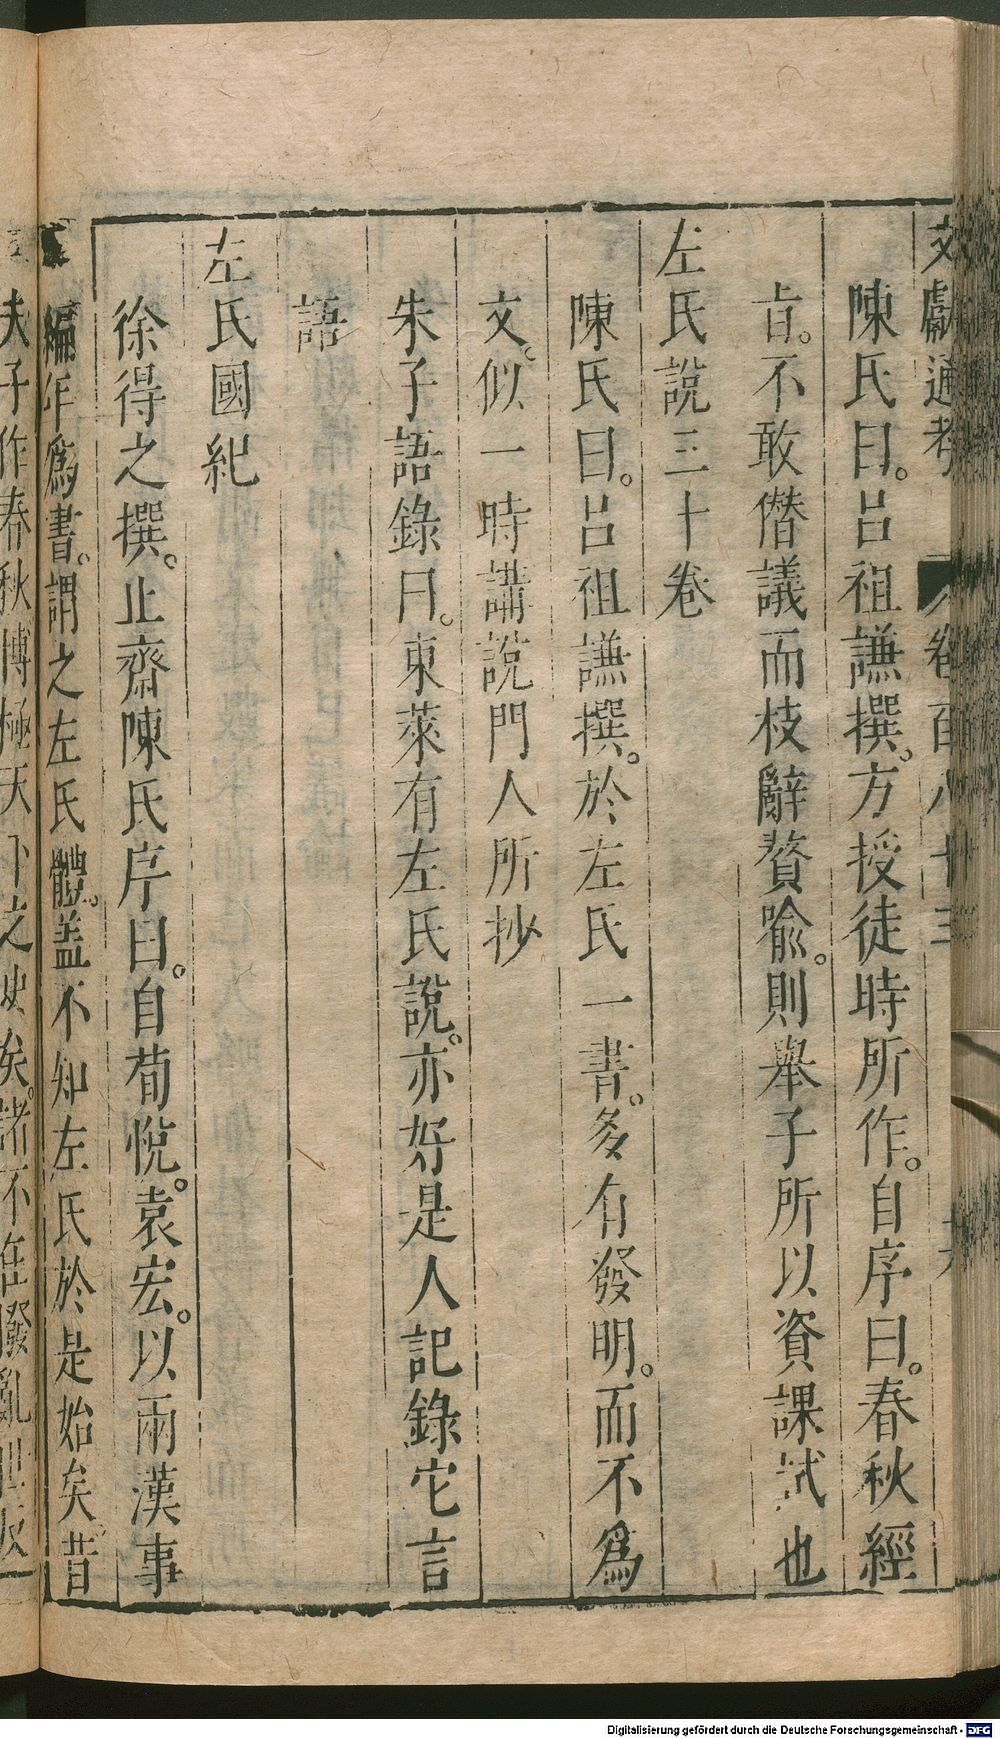 文獻通考 卷百八十三
陳氏曰。呂祖謙撰。方授徒時所作。自序曰。春秋經
旨。不敢僭議而枝辭贅喻。則舉子所以資課試也
左氏說三十卷
陳氏曰。呂祖謙撰。於左氏一書。多有發明。而不為
文。似一時講說門人所抄
朱子語錄曰。東萊有左氏說。亦好是人記錄它言
語
左氏國紀
徐得之撰。止齋陳氏序曰。自荀悅。袁宏。以兩漢事
編年爲書。謂之左氏體。蓋不知左氏於是始矣。昔
夫子作春秋博極天下之史矣。諸不在撥亂世反
Digitalisierung gefördert durch die Deutsche Forschungsgemeinschaft - DFG